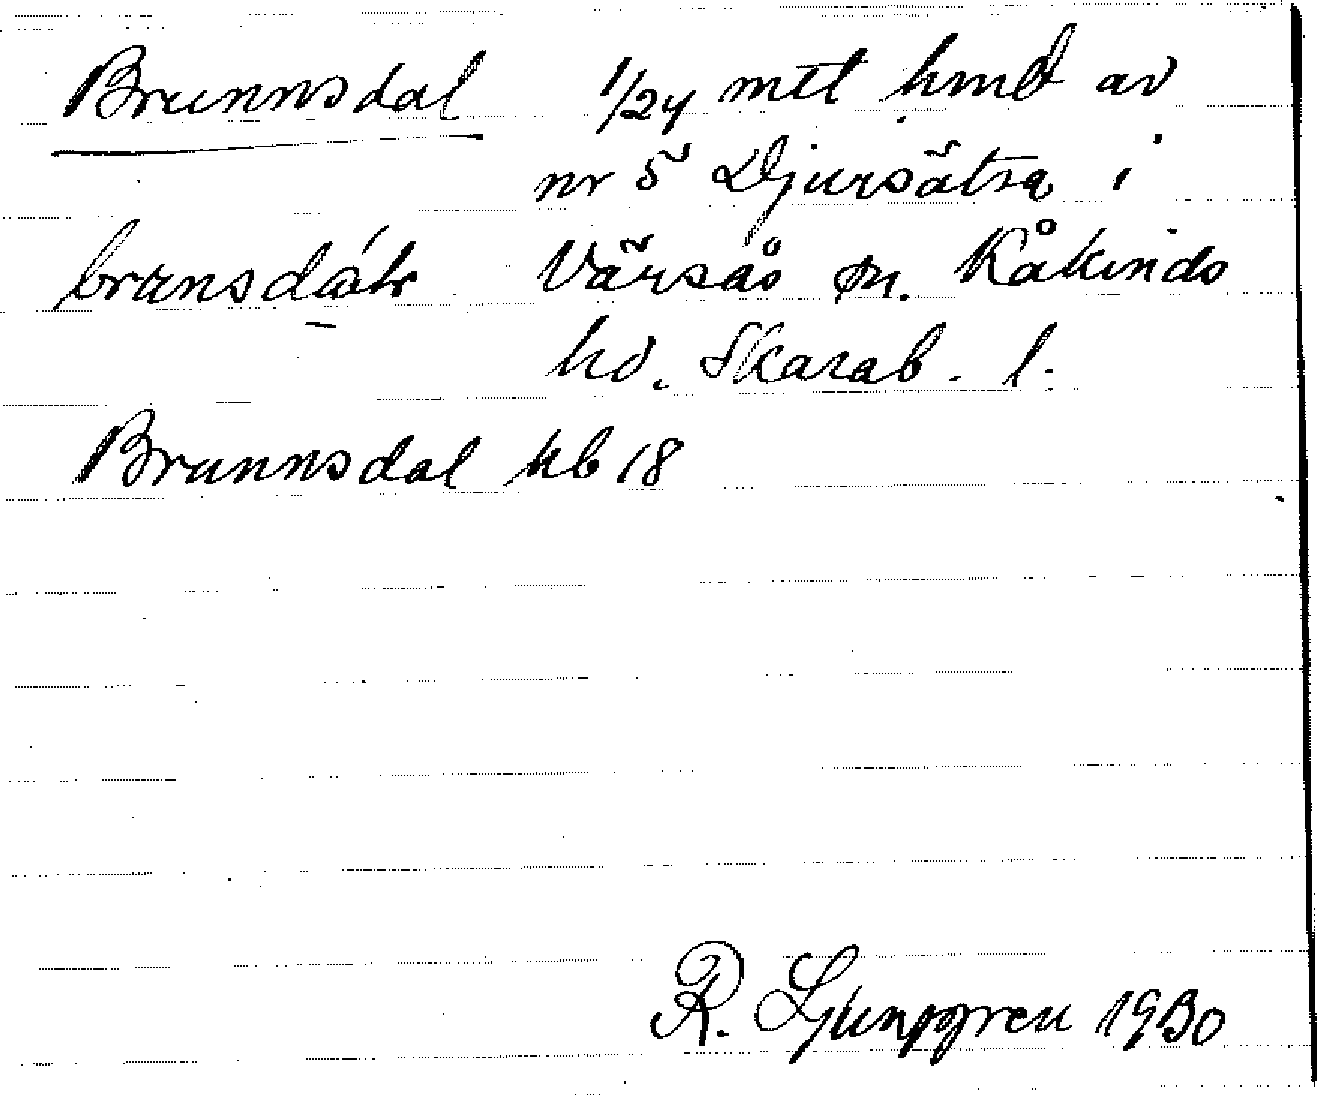 Brunnsdal 1/24 mtl hmd av
nr 5 Djursätra i
Värsås sn. Kåkinds
hd. Skarab. l.
Brunnsdal kb 18
R. Ljunggren 1930